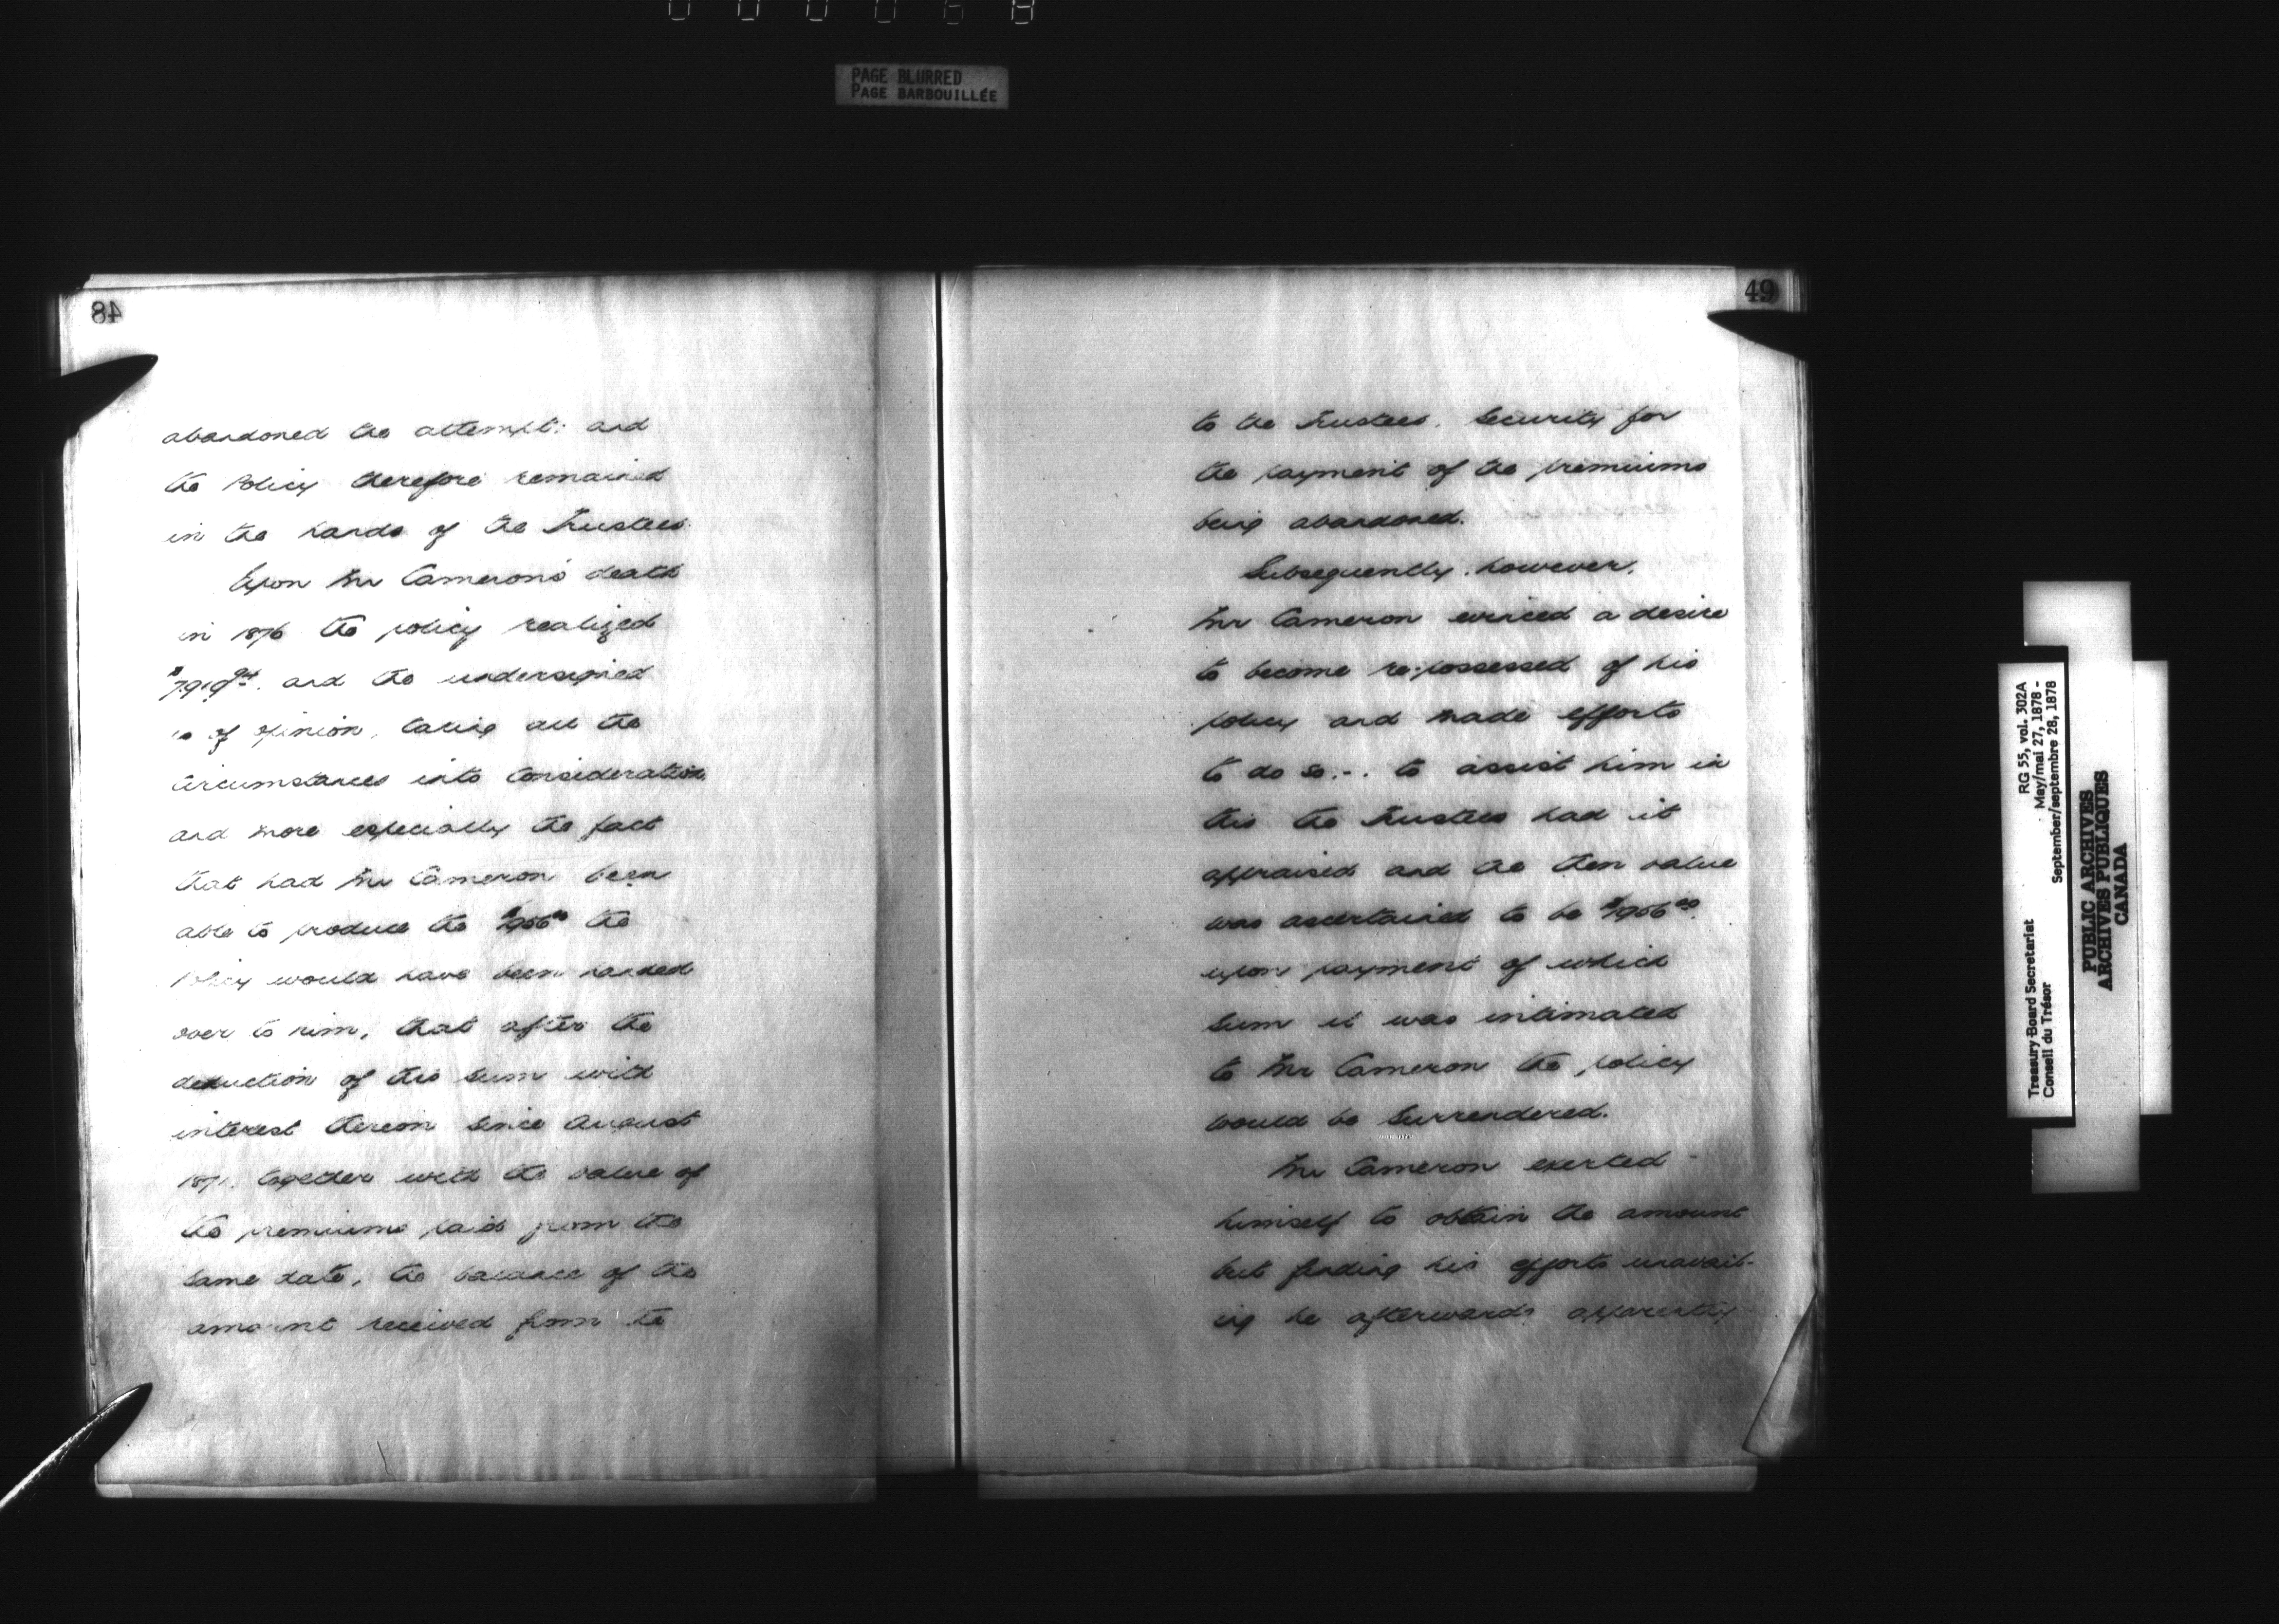 PAGE BLURRED
PAGE BARBOUILLÉE
48
abandoned the attempt: and
the Policy therefore remained
in the hands of the Trustees.
Upon Mr Cameron's death
in 1876 the policy realized
and the undersigned
is of opinion, taking all the
circumstances into consideration,
and more especially the fact
that had Mr Cameron been
able to produce the the
Policy would have been handed
over to him, that after the
deduction of this sum with
interest thereon since August
1871, together with the value of
the premiums paid from the
same date, the balance of the
amount received from the
49
to the Trustees. Security for
the payment of the premiums
being abandoned.
Subsequently, however,
Mr Cameron evinced a desire
to become re-possessed of his
policy and made efforts
to do so.-. to assist him in
this the Trustees had it
appraised and the then value
was ascertained to be
upon payment of which
sum it was intimated
to Mr Cameron the policy
would be surrendered.
Mr Cameron exerted
himself to obtain the amount
but finding his efforts unavail-
ing he afterwards apparently
Treasury Board Secretariat RG 55, vol. 302A
Conseil du Trésor May/mai 27, 1878 -
September/septembre 28, 1878
PUBLIC ARCHIVES
ARCHIVES PUBLIQUES
CANADA